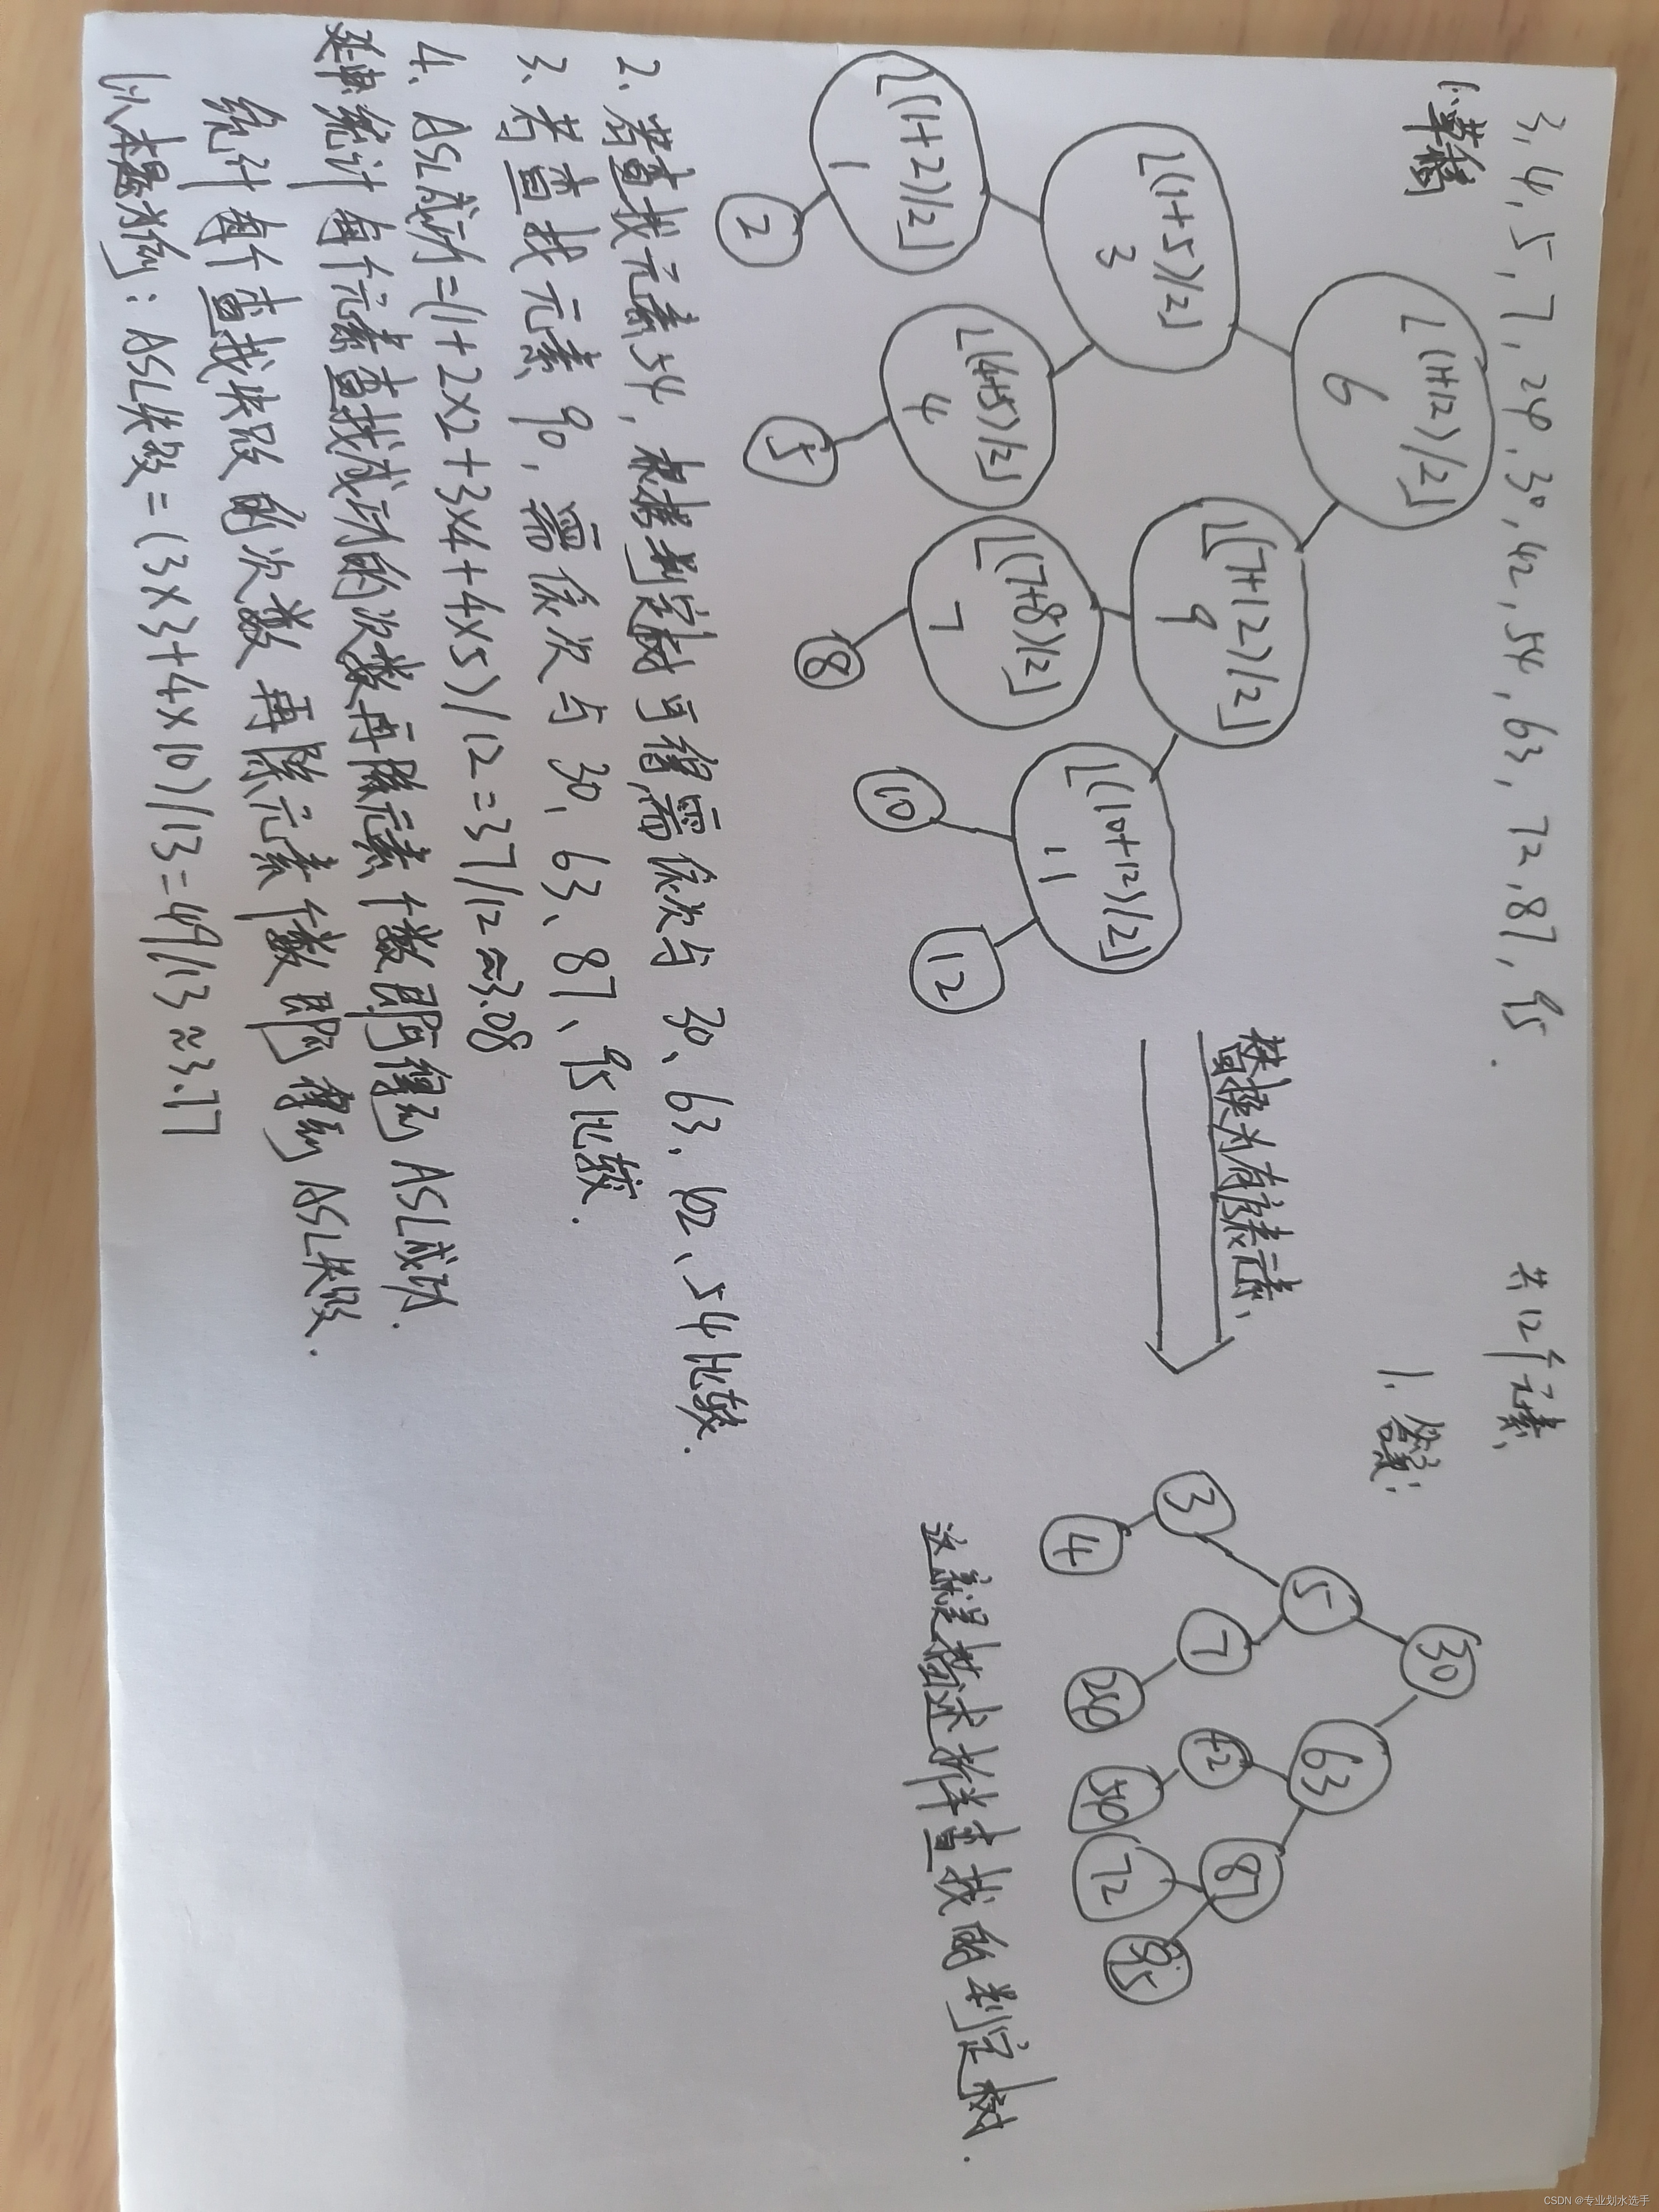 3, 4, 5, 7, 24, 30, 42, 54, 63, 72, 87, 95. 共12个元素
1. 草稿
1. 答案:
⌊(1+12)/2⌋
6
⌊(1+5)/2⌋
3
⌊(7+12)/2⌋
9
⌊(1+2)/2⌋
1
⌊(4+5)/2⌋
4
⌊(7+8)/2⌋
7
⌊(10+12)/2⌋
11
2
5
8
10
12
替换为有序表元素
30
5
63
3
7
42
87
4
24
54
72
95
这就是描述折半查找的判定树.
2. 若查找元素54, 根据判定树可得需依次与 30、63、42、54比较.
3. 若查找元素 90, 需依次与 30、63、87、95比较.
4. ASL成功=(1+2×2+3×4+4×5)/12=37/12≈3.08
延申 统计每个元素查找成功的次数再除元素个数即可得到ASL成功.
统计每个查找失败的次数再除元素个数即可得到ASL失败.
以本题为例: ASL失败=(3×3+4×10)/13=49/13≈3.77
CSDN @专业划水选手